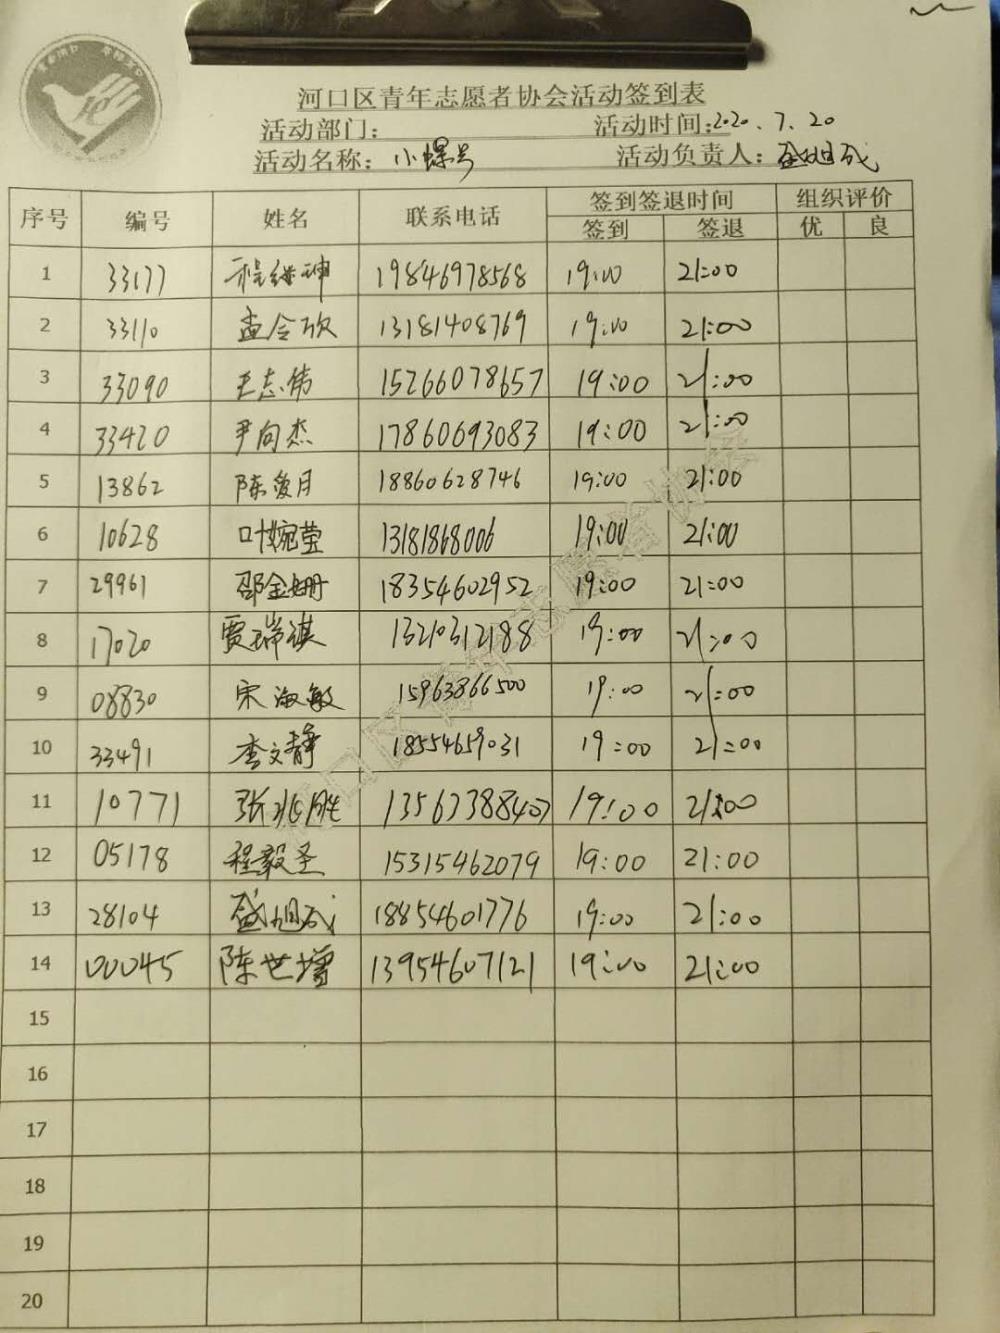 河口区青年志愿者协会活动签到表
活动部门： 活动时间：2020.7.20
活动名称：小螺号 活动负责人：盛旭成
序号 编号 姓名 联系电话 签到签退时间 组织评价
签到 签退 优 良
1 33177 程继坤 19846978568 19:00 21:00
2 33110 孟令欣 13181408769 19:00 21:00
3 33090 王志伟 15266078657 19:00 21:00
4 33420 尹向杰 17860693083 19:00 21:00
5 13862 陈爱月 18860628746 19:00 21:00
6 10628 叶婉莹 13181868006 19:00 21:00
7 29961 邵金姗 18354602952 19:00 21:00
8 17020 贾瑞祺 13210312188 19:00 21:00
9 08830 宋淑敏 15963866500 19:00 21:00
10 33491 李文静 18554659031 19:00 21:00
11 10771 张兆胜 13563388407 19:00 21:00
12 05178 程毅圣 15315462079 19:00 21:00
13 28104 盛旭成 18854601776 19:00 21:00
14 00045 陈世增 13954607121 19:00 21:00
15
16
17
18
19
20